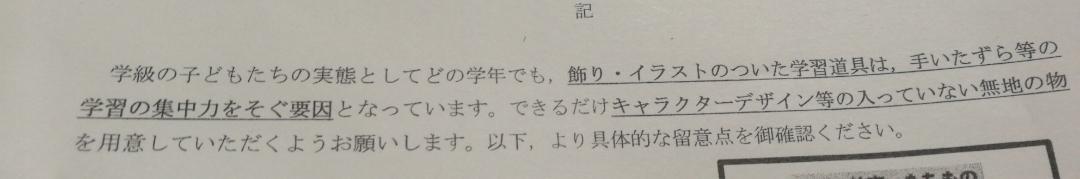 記
学級の子どもたちの実態としてどの学年でも，飾り・イラストのついた学習道具は，手いたずら等の
学習の集中力をそぐ要因となっています。できるだけキャラクターデザイン等の入っていない無地の物
を用意していただくようお願いします。以下，より具体的な留意点を御確認ください。